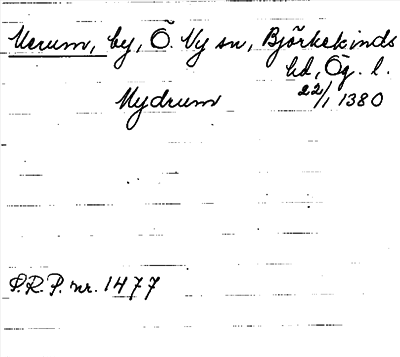 Merum, by, Ö. Ny sn, Björkekinds
hd, Ög. l.
Mydrum 22/1 1380
P.R.P. nr. 1477